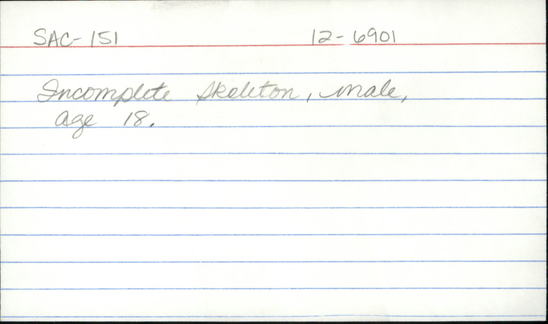 SAC-151 12-6901
Incomplete skeleton, male,
age 18.